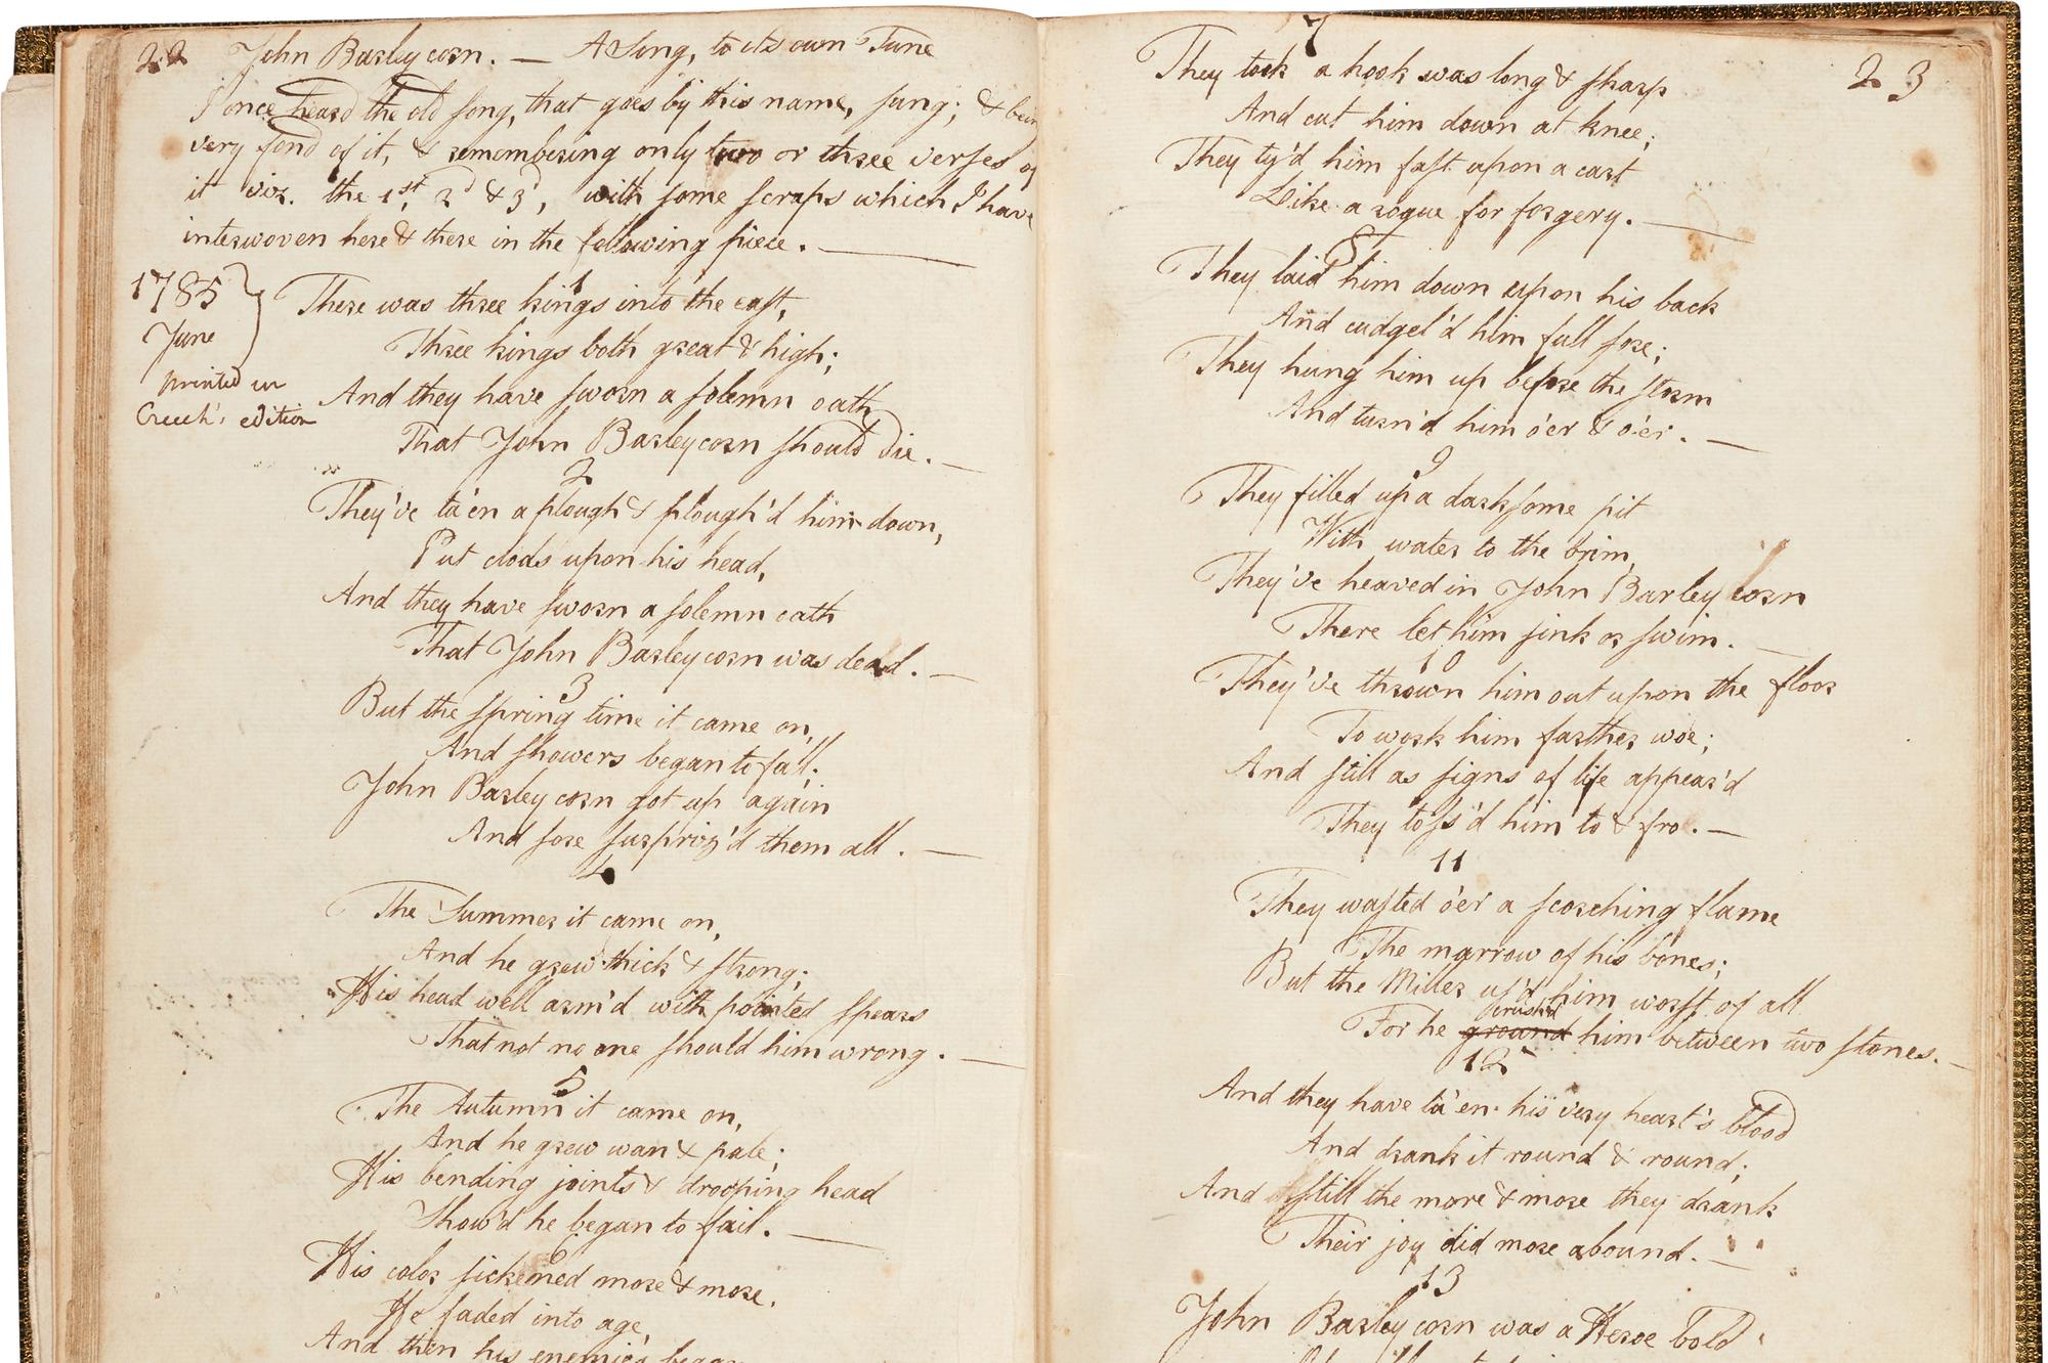 22 John Barleycorn. — A Song, to its own Tune
I once heard the old song, that goes by this name, sung; & being
very fond of it, & remembering only two or three verses of
it viz. the 1st, 2d & 3d, with some scraps which I have
interwoven here & there in the following piece. —
1785
June
printed in
Creech's edition
1
There was three kings into the east,
Three kings both great & high;
And they have sworn a solemn oath
That John Barleycorn should die. —
2
They've ta'en a plough & plough'd him down,
Put clods upon his head,
And they have sworn a solemn oath
That John Barleycorn was dead. —
3
But the spring time it came on,
And showers began to fall;
John Barleycorn got up again
And sore surpris'd them all. —
4
The Summer it came on,
And he grew thick & strong;
His head well arm'd with pointed spears
That not no one should him wrong. —
5
The Autumn it came on,
And he grew wan & pale;
His bending joints & drooping head
Show'd he began to fail. —
6
His color sickened more & more,
He faded into age,
And then his enemies began
23
7
They took a hook was long & sharp
And cut him down at knee;
They ty'd him fast upon a cart
Like a rogue for forgery. —
8
They laid him down upon his back
And cudgel'd him full sore;
They hung him up before the storm
And turn'd him o'er & o'er. —
9
They filled up a darksome pit
With water to the brim,
They've heaved in John Barleycorn
There let him sink or swim. —
10
They've thrown him out upon the floor
To work him farther woe;
And still as signs of life appear'd
They toss'd him to & fro. —
11
They wasted o'er a scorching flame
The marrow of his bones;
But the Miller us'd him worst of all
crush'd
For he ground him between two stones. —
12
And they have ta'en his very heart's blood
And drank it round & round;
And still the more & more they drank
Their joy did more abound. —
13
John Barleycorn was a Heroe bold